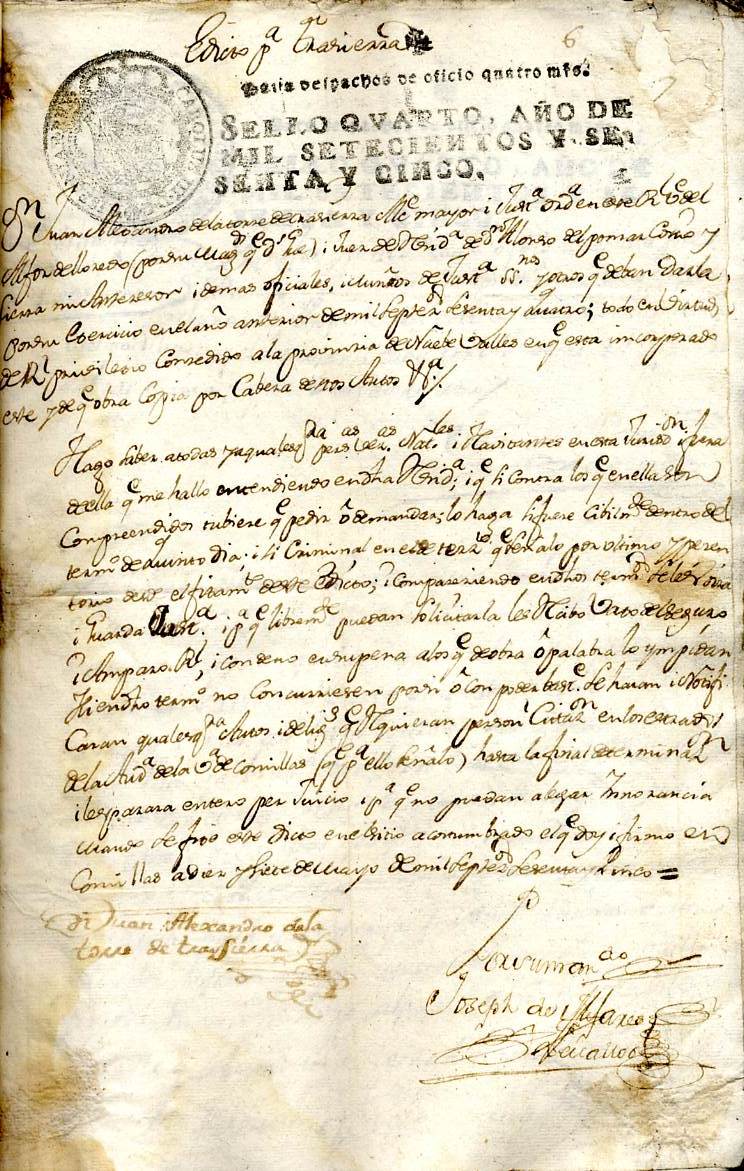 Edicto pª trasierra
6
Para despachos de oficio quatro mrs.
SELLO QVARTO, AÑO DE
MIL SETECIENTOS Y SE-
SENTA Y CINCO.
Dn Juan Alexandro de la torre de trasierra Alc. mayor i Justª ordª en este Rl Vº del
Alfoz de lloredo (por su Magd q Ds gue) i Juez de Residª de Dn Alonso del pomar Corro y
Sierra mi Antecesor i demas oficiales, i de Justª SSnos y otros q deban Darla
por su Exercicio en el año anterior de mil Septezos Sesenta y quatro; todo en Virtud
de Rl privilegio Concedido a la provincia de Nuebe Valles en q esta incorporado
este y de q obra Copia por Cabeza de Autos Vª
Hago saber a todas y a quales qra persas Vezas Natles i Havitantes en esta Jurisdon i fuera
de ella q me hallo entendiendo en dha Residª i q si Contra los q en ella son
Comprendidos tubiere q pedir ó demandar; lo haga si fuere Cibilmte dentro del
termº de quinto dia; i si Criminal en el de terzº q señalo por ultimo y peren
torio desde el firamte de este Edicto; i Compareziendo en dhos termos se les Oira
i Guarda Justª i pª q libremte puedan solicitarla les Rezibo Vajo el Seguro
i Amparo Rl, i condeno en su pena a los q de obra ó palabra lo ympidan
Si en dho termº no Concurriesen por si ó con poder bastte Se haran i Notifi
Caran quales qra Autos i deligs q Requieran person Citazn en los estrados
de la Audª de la Vª de Comillas (q pª ello señalo) hasta la final determinazn
i les parara entero perjuicio i pª q no puedan alegar Innorancia
mando se fije este Edicto en el sitio acostumbrado el q doy i firmo en
Comillas a diez y siete de Mayo de mil Septezos Sesenta y Cinco =
Dn Juan Alexandro de la
torre de trasierra
P
Por su mandº
Joseph de